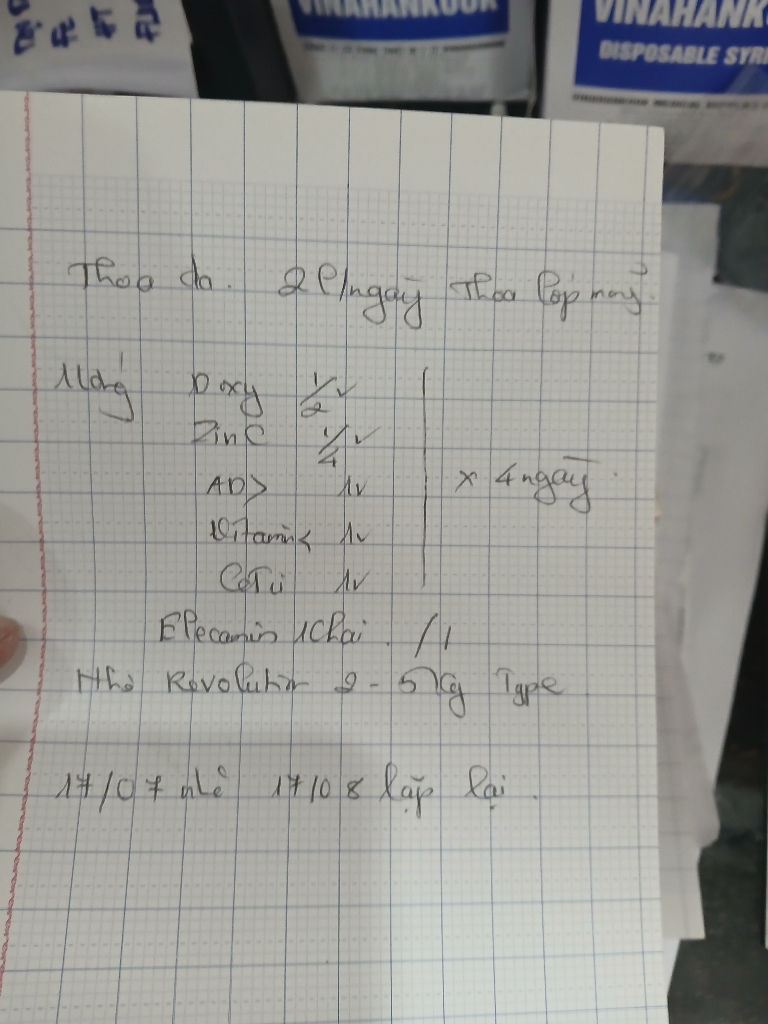 VINAHANKOOK
VINAHANK
DISPOSABLE SYRI
Thoa da. 2 l/ngày Thoa lớp mỏng.
Uống Doxy 1/2 v
Zinc 1/4 v
AD> 1v
x 4 ngày.
Vitamin 1v
1v
1 chai. /1
Nhỏ Revolution 2-5 Kg Type
17/07 nhỏ 17/08 lặp lại.